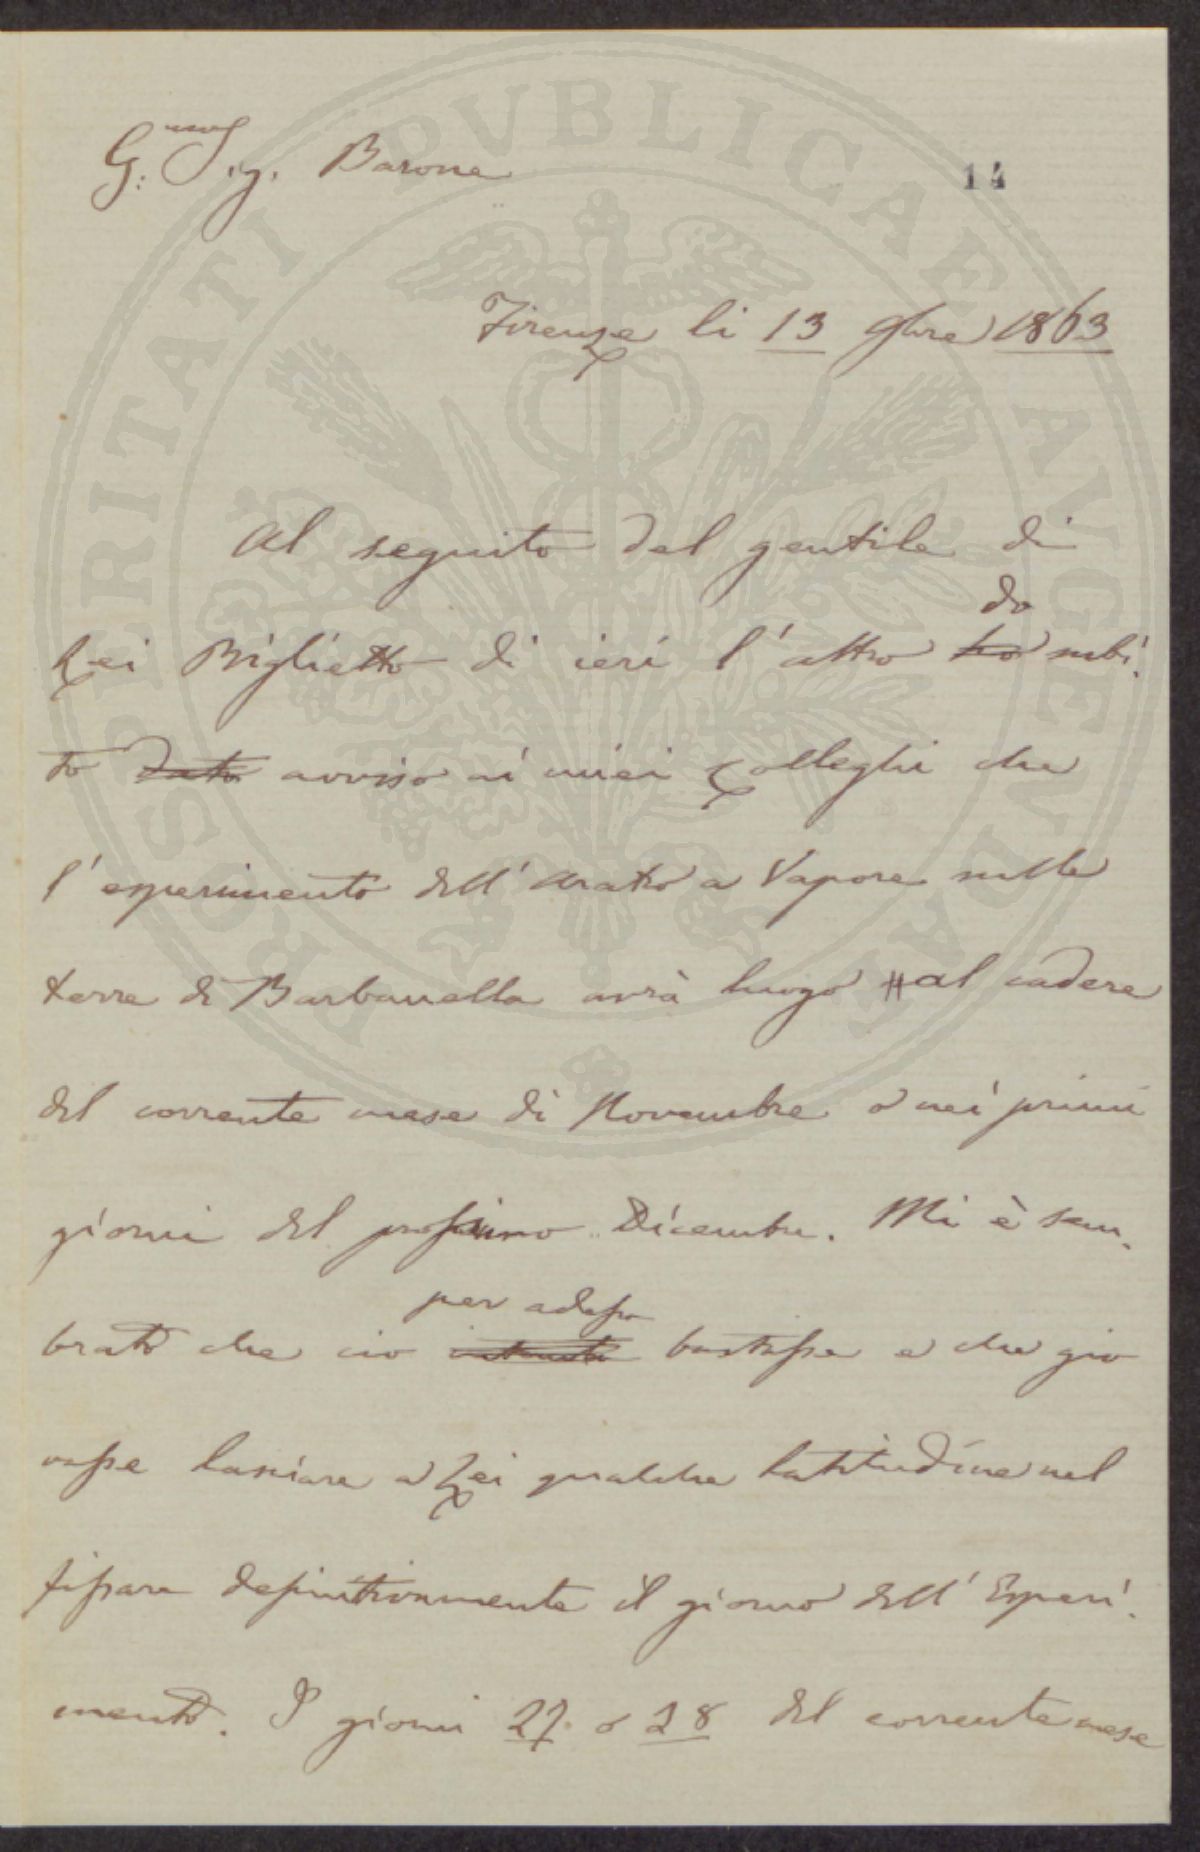 G:mo Sig. Barone
14
Firenze li 13 9bre 1863
Al seguito del gentile di
do
Lei Biglietto di ieri l'altro ho subi.
to dato avviso ai miei Colleghi che
l'esperimento dell'aratro a Vapore nelle
terre di Barbanella avrà luogo al cadere
del corrente mese di Novembre o nei primi
giorni del prossimo Dicembre. Mi è sem.
per adesso
brato che ciò bastasse e che gio
vasse lasciare a Lei qualche latitudine nel
fissare definitivamente il giorno dell'Esperi.
mento. I giorni 27. o 28 del corrente mese
PROSPERITATI PVBLICAE AVGENDAE